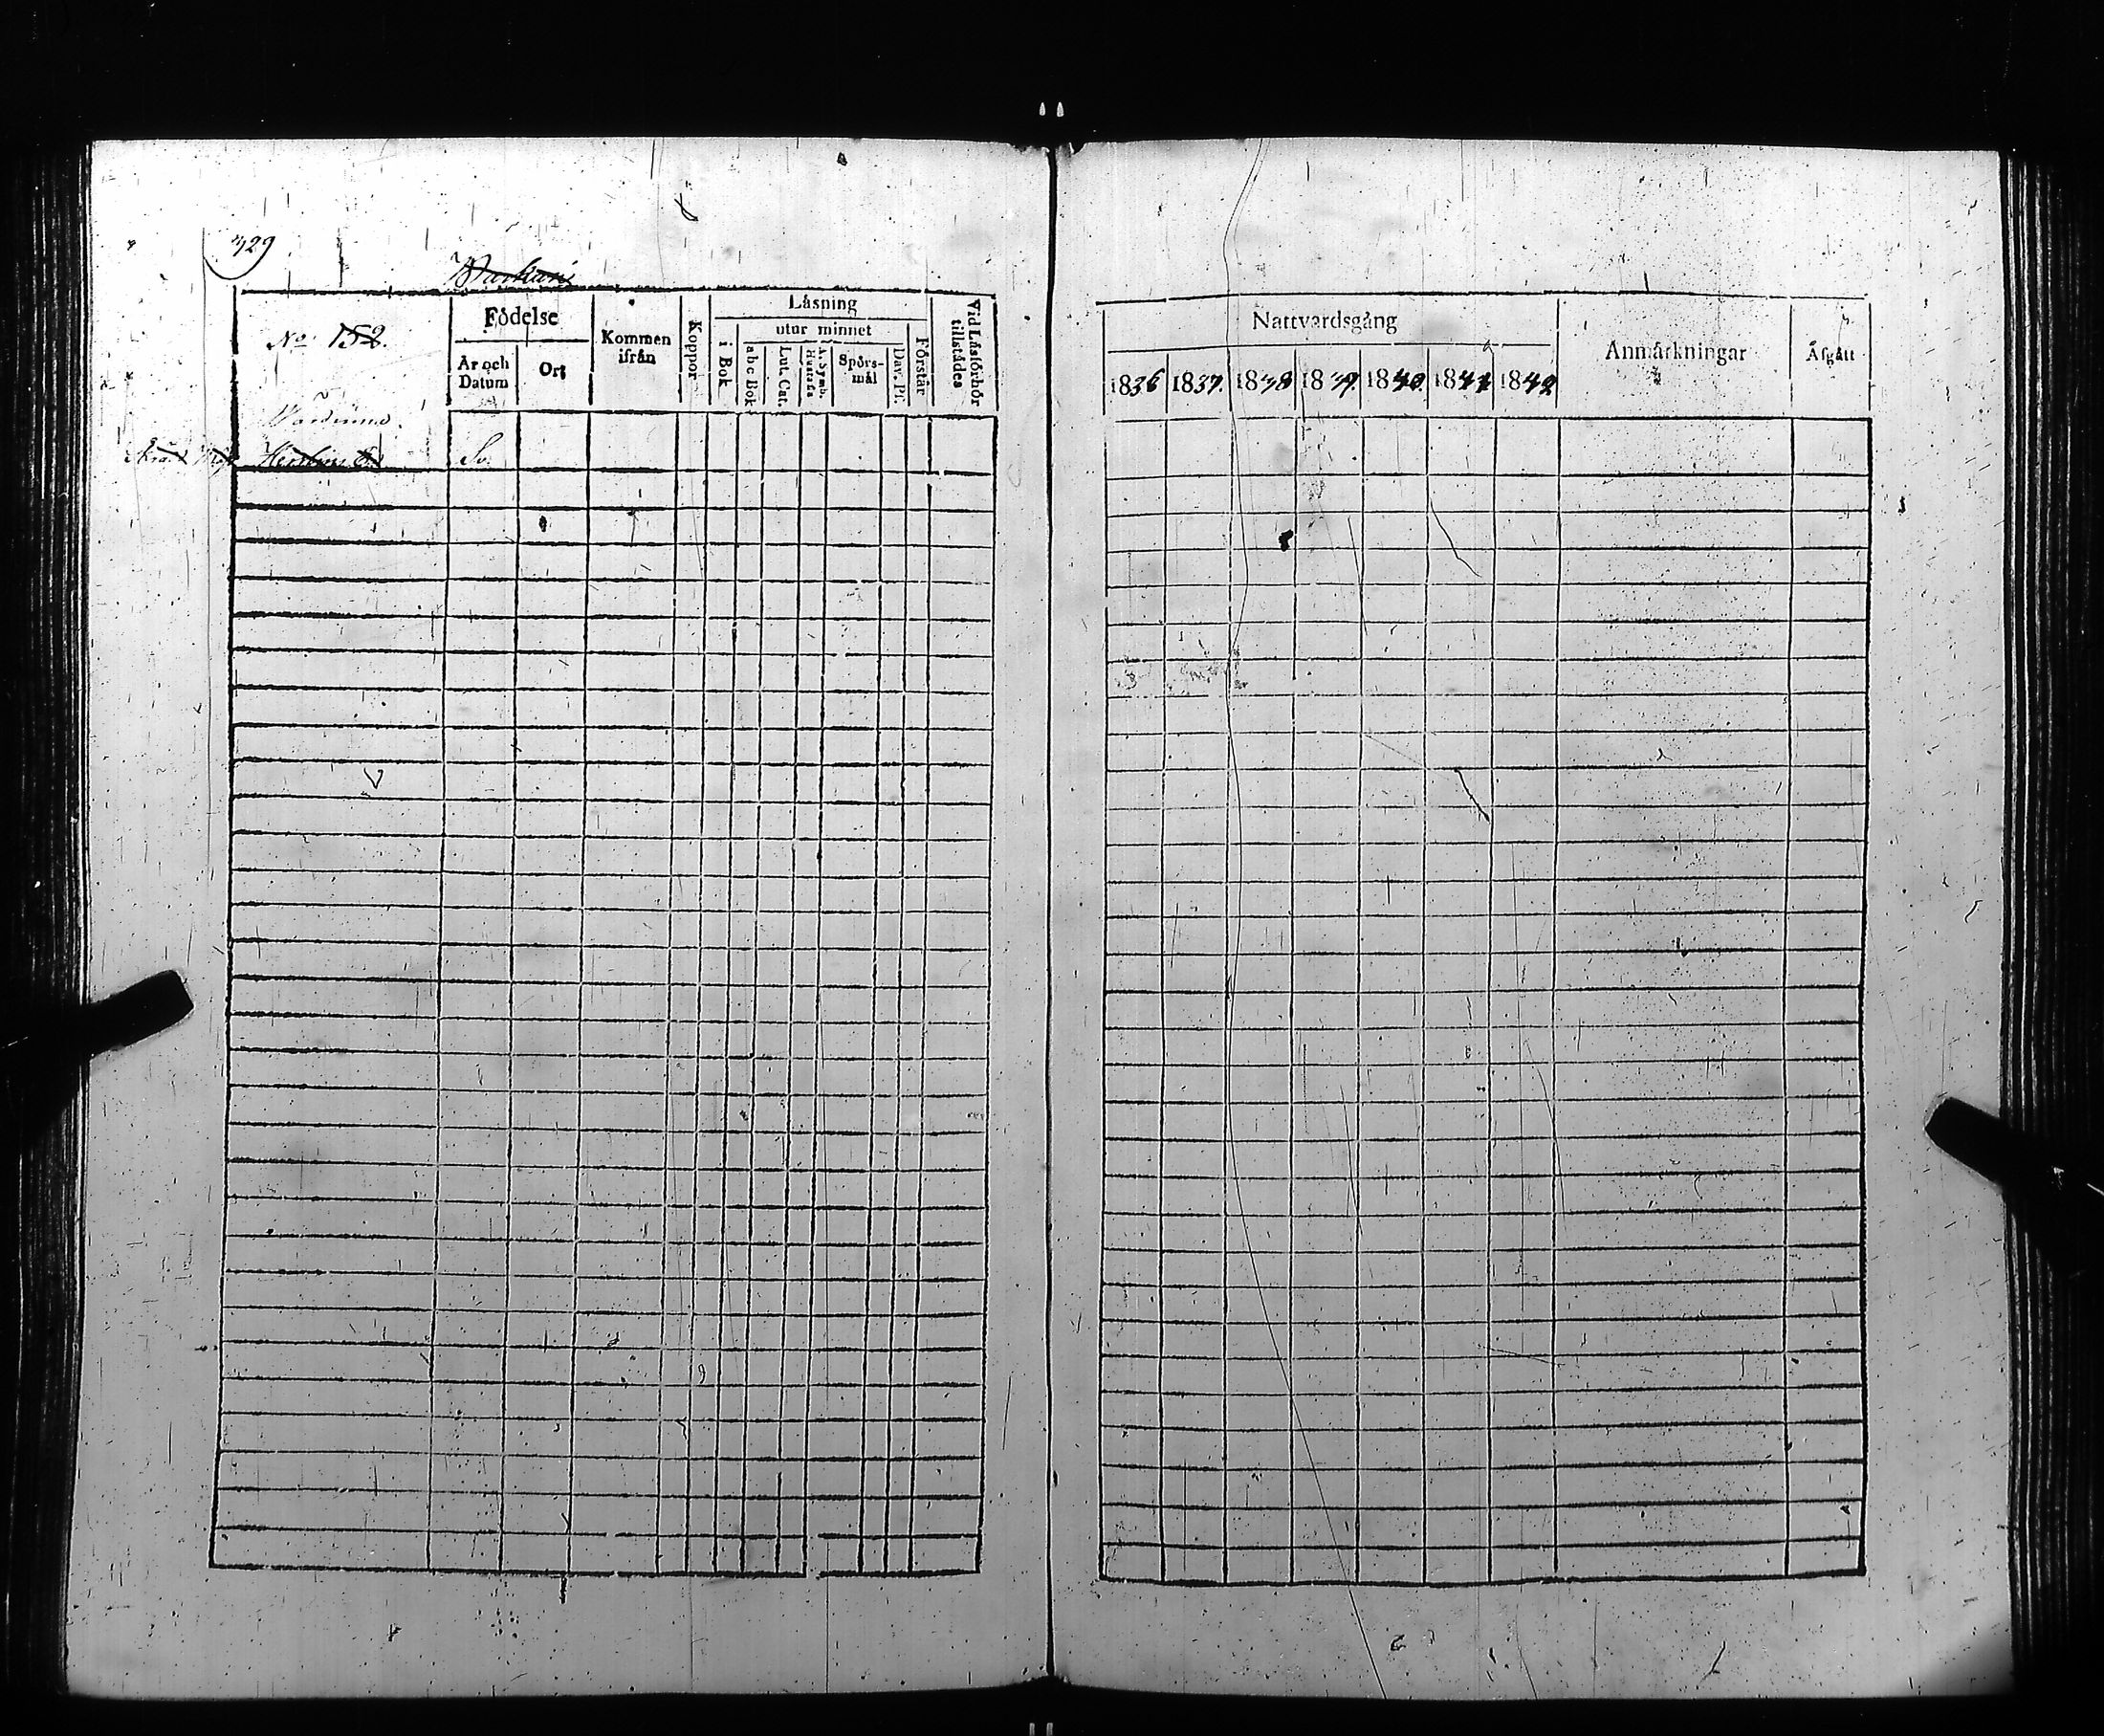 329
Warkaus
No 152.
Födelse
År och Datum
Ort
Kommen ifrån
Koppor
Låsning
i Bok
utur minnet
abc Bok
Lut. Cat.
A. Symb. Hustafla
Spörs-mål
Dav. Ps.
Förstår
Vid Läsförhör tillstådes
Sv.
Nattvardsgång
1836 1837. 1838 1839. 1840. 1841 1842
Anmärkningar
Afgått